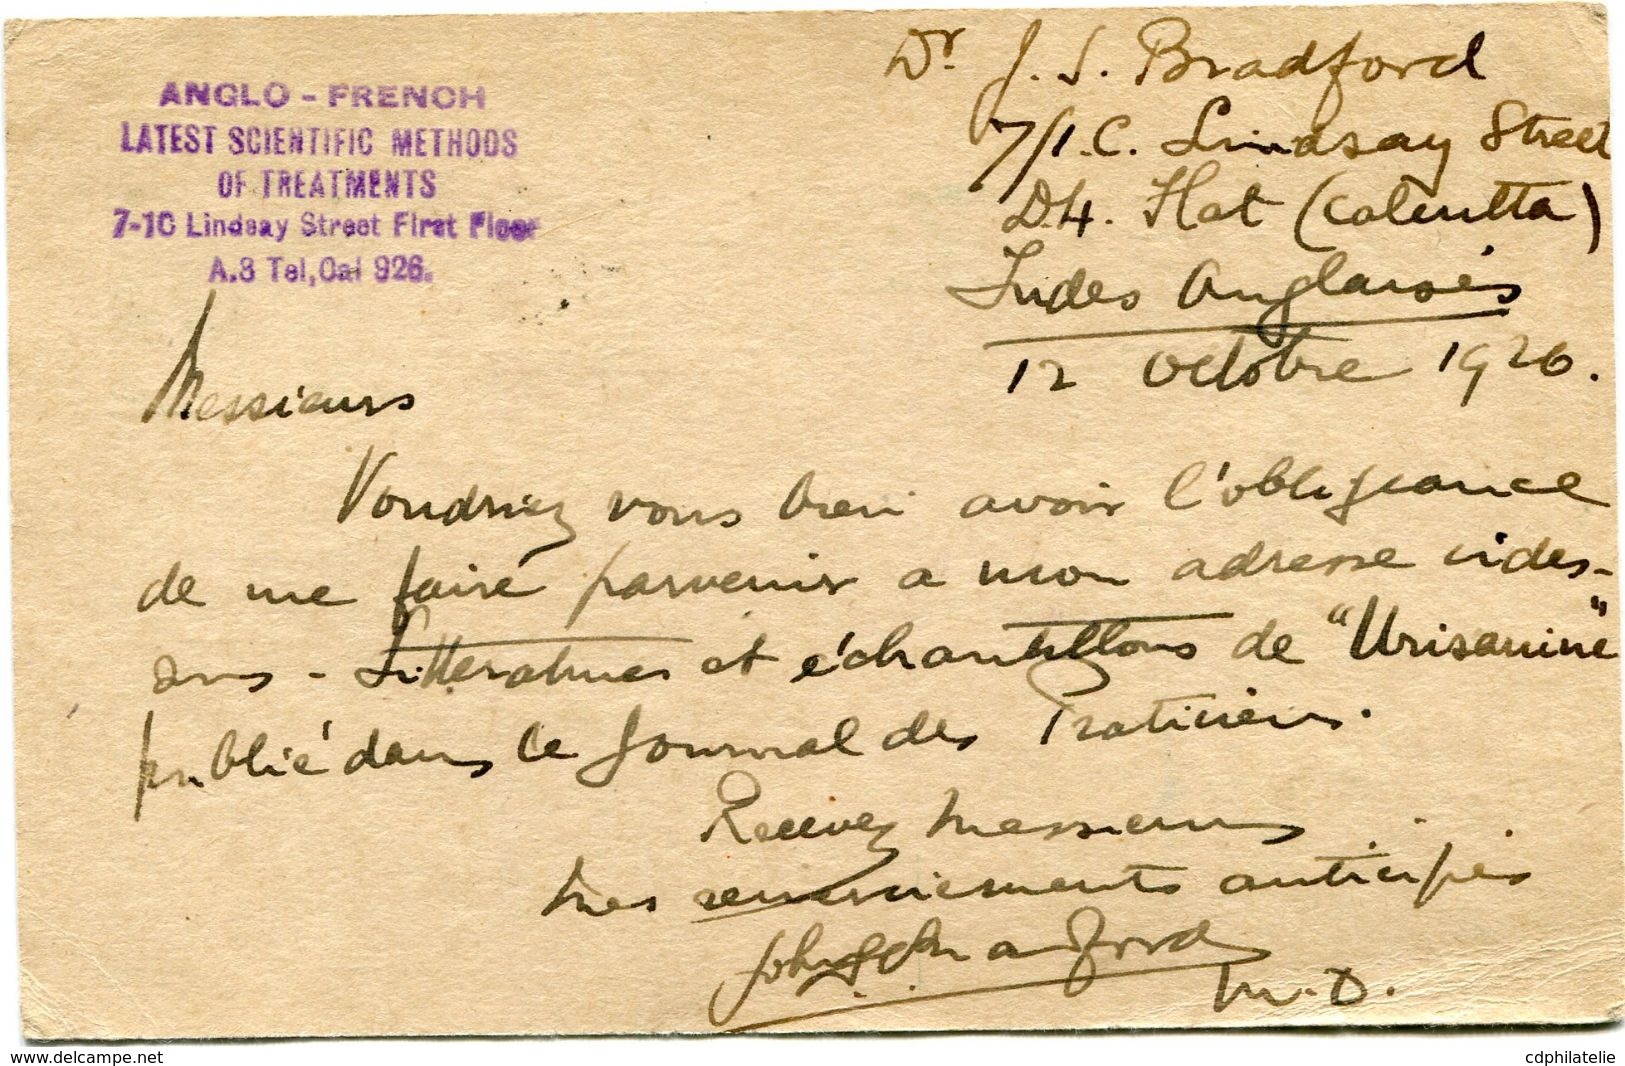 ANGLO - FRENCH
LATEST SCIENTIFIC METHODS
OF TREATMENTS
7-1C Lindsay Street First Floor
A.3 Tel, Cal 926.
Dr. J. S. Bradford
7/1.C. Lindsay Street
D.4. Flat (Calcutta)
Indes Anglaises
12 Octobre 1926.
Messieurs
Voudriez vous bien avoir l'obligeance
de me faire parvenir a mon adresse cides-
sus - Litteratures et échantillons de "Urisanine"
publié dans le Journal des Praticiens.
Recevez Messieurs
Mes remerciements anticipés
John S. Bradford
M.D.
www.delcampe.net
cdphilatelie